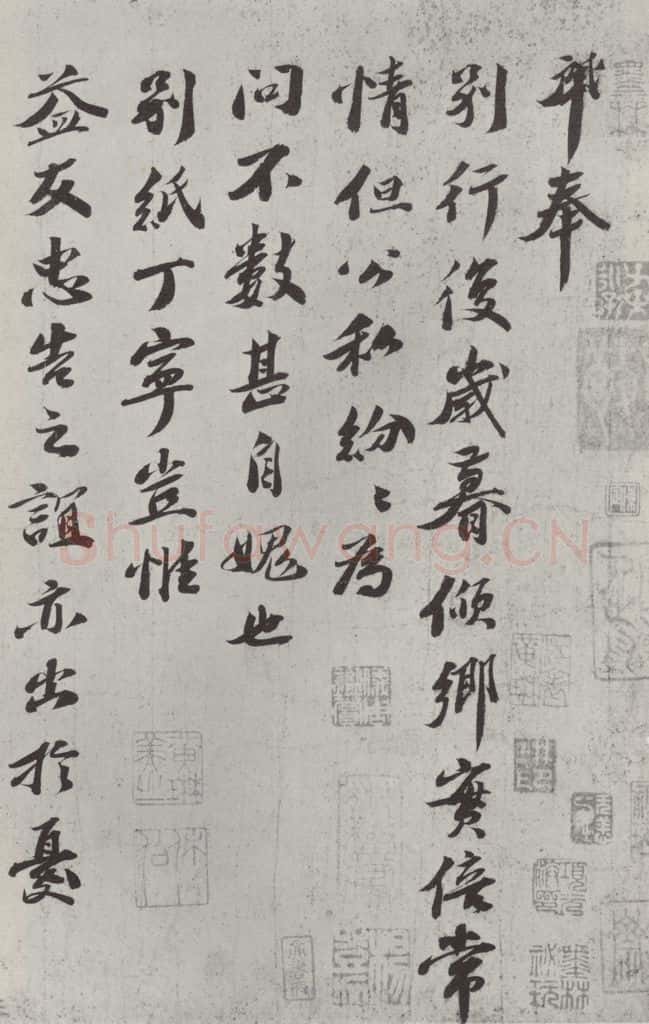 奉
別行後歲暮傾鄉實倍常
情但公私紛〻為
問不數甚自媿也
別紙丁寧豈惟
益友忠告之誼亦出於憂
Shufawang.CN